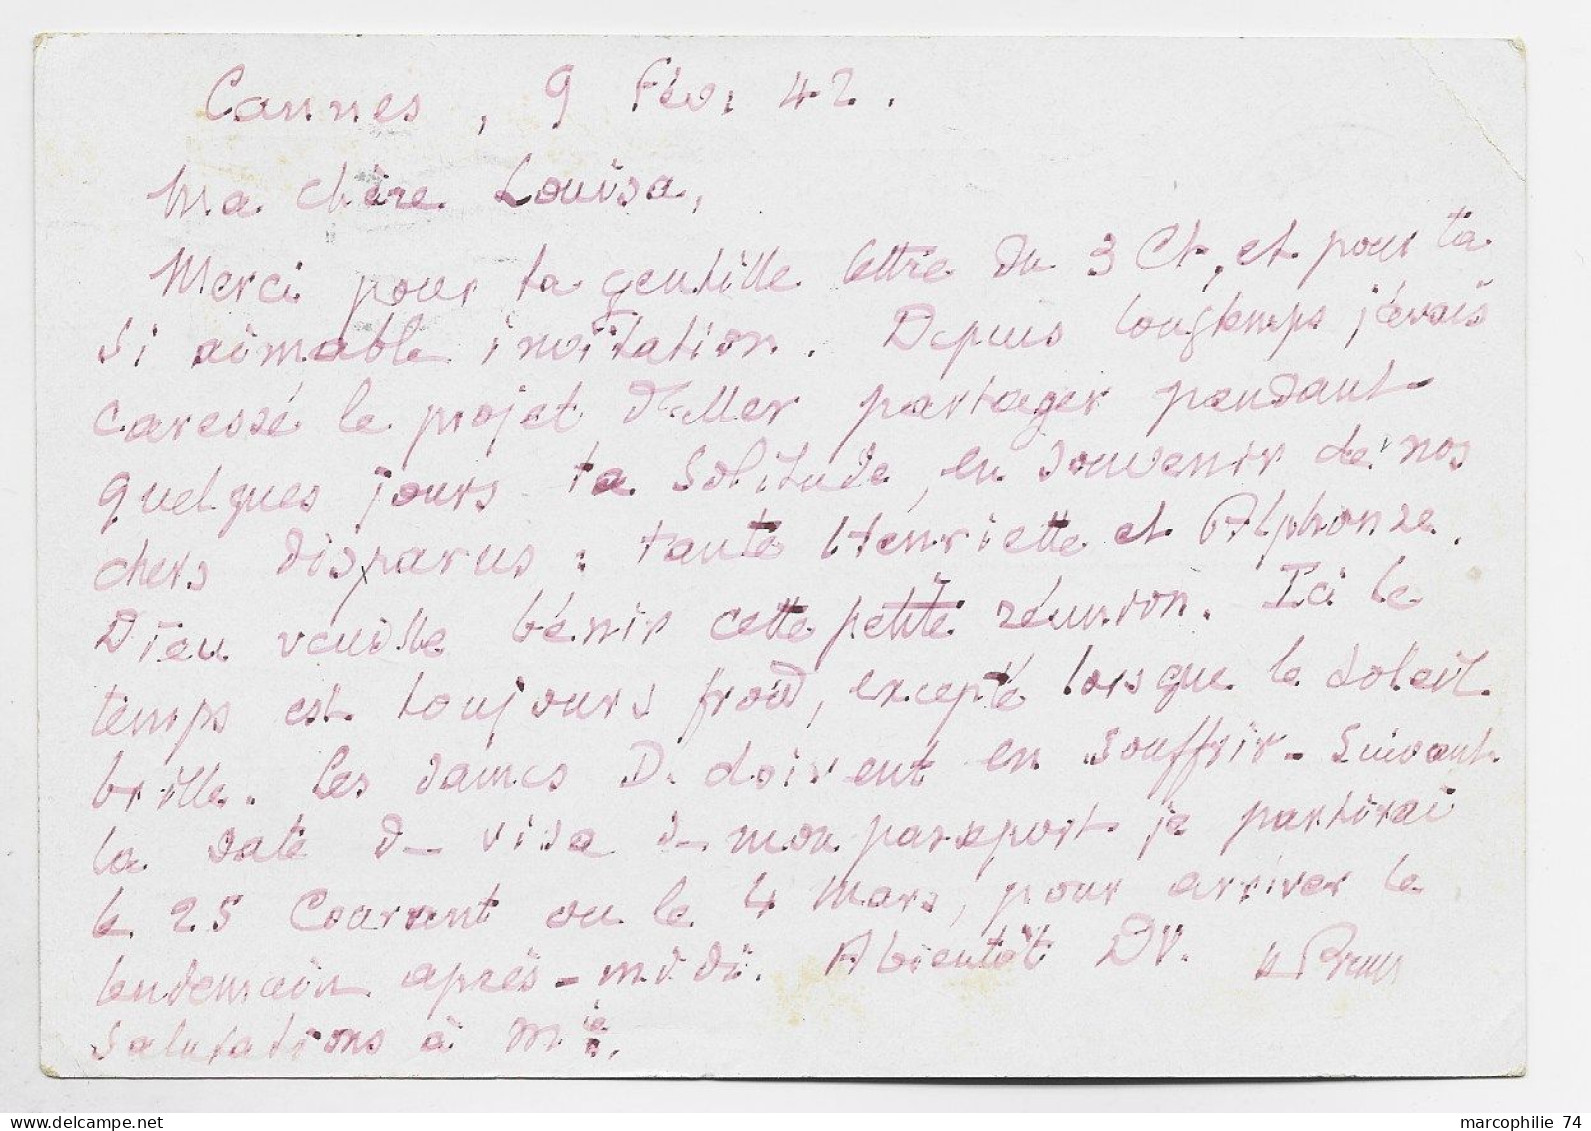 Cannes, 9 Févr 42.
Ma chère Louisa,
Merci pour ta gentille lettre du 3 Ct, et pour ta
si aimable invitation. Depuis longtemps j'avais
caressé le projet d'aller partager pendant
quelques jours ta solitude, en souvenir de nos
chers disparus : tante Henriette et Alphonse.
Dieu veuille bénir cette petite réunion. Ici le
temps est toujours froid, excepté lorsque le soleil
brille. Les dames D. doivent en souffrir. Suivant
la date du visa de mon passeport je partirai
le 25 Courant ou le 4 Mars, pour arriver le
lendemain après-midi. A bientôt DV.
Salutations à Mie.
marcophilie 74